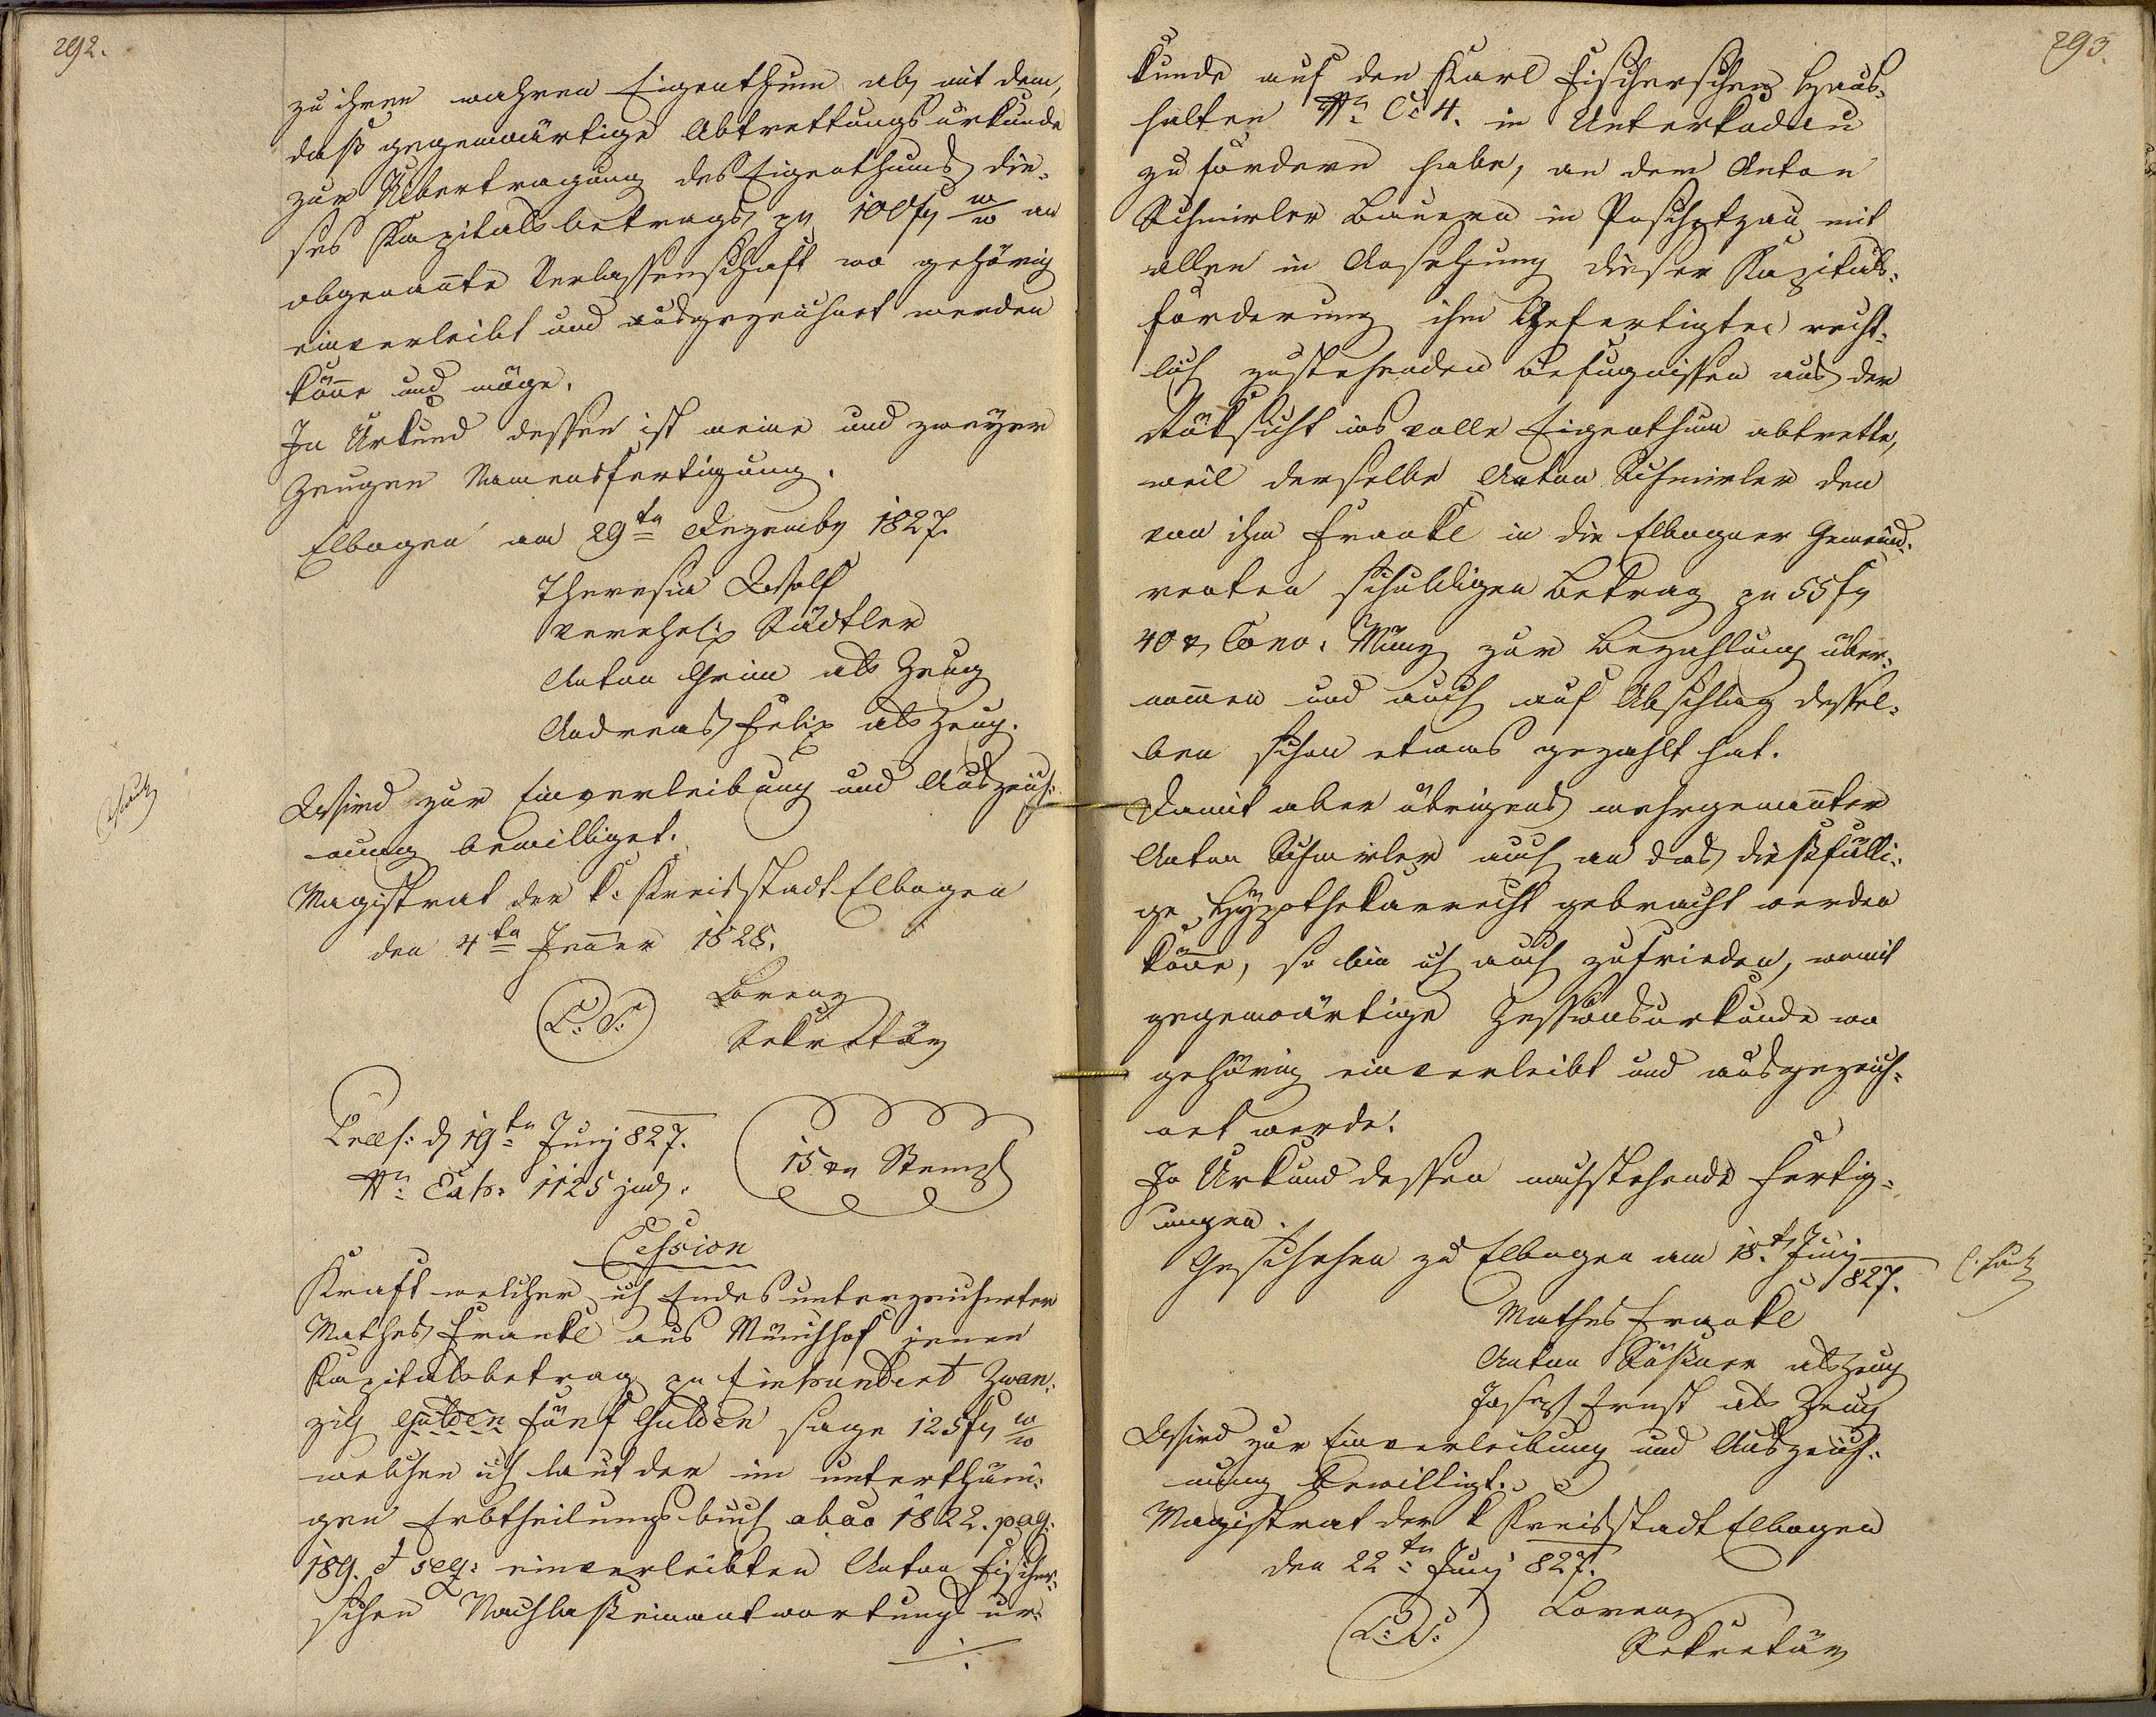 292.
zu ihren wahren Eigenthum ab, mit dem,
daß gegenwärtige Abtrettungsurkunde
zur Übertragung des Eigenthums die¬
ses Kapitalsbetrags pr 100 fr w/w an
obgenañte Verlassenschaft wo gehörig
einverleibt und ausgezeichnet werden
köñe und möge.
In Urkund dessen ist meine und zweyer
Zeugen Namensfertigung.
Elbogen am 29ten Dezember 1827.
Theresia Wolf
verehelig Städtler
Anton Grim als Zeug
Andreas Felix als Zeug.
Wird zur Einverleibung und Auszeich¬
nung bewilliget.
Magistrat der k: Kreisstadt Elbogen
den 4ten Jeñer 1828.
L: S: Lorenz
Sekretär
Præs: d 19ten Juny 827.
Nr: Exh: 1125 jud.
15 xr Stempl
Cession
Kraft welcher ich Endesunterzeichneter
Mathes Frankl aus Münchhof jenen
Kapitalsbetrag pr Einhundert Zwan¬
zig Gulden fünf Gulden sage 125 fr w/w
welchen ich laut der im unterthäni¬
gen Erbtheilungsbuch abao 1822. pag.
189. et seq: einverleibten Anton Fischer¬
schen Nachlaßeinantwortungsur¬
./.
293.
kunde auf den Karl Fischerschen Haus¬
halten Nr. C: 4. in Unterkodau
zu fordern habe, an dem Anton
Schmirler Bauern in Poschetzau mit
allen in Ansehung dieser Kapitals¬
forderung ihm Gefertigten recht¬
lich zustehenden Befugnissen aus der
Rüksicht ins volle Eigenthum abtrette,
weil derselbe Anton Schmirler den
von ihm Frankl in die Elbogner Gemeind¬
renten schuldigen Betrag pr 55 fr
40 xr Conv: Münz zur Bezahlung über¬
nom̃en und auch auf Abschlag dessel¬
ben schon etwas gezahlt hat.
Damit aber übrigens mehrgenañter
Anton Schmirler auch an das dießfälli¬
ge Hypothekarrecht gebracht werden
köñe, so bin ich auch zufrieden, womit
gegenwärtige Zessionsurkunde wo
gehörig einverleibt und ausgezeich¬
net werde.
In Urkund dessen nachstehende Fertig¬
ungen.
Geschehen zu Elbogen am 18.t Juny
827.
Mathes Frankl
Anton als Zeug
Joseph Ernst als Zeug
Wird zur Einverleibung und Auszeich¬
nung bewilligt.
Magistrat der k Kreisstadt Elbogen
den 22ten Juny 827.
L: S: Lorenz
Sekretär